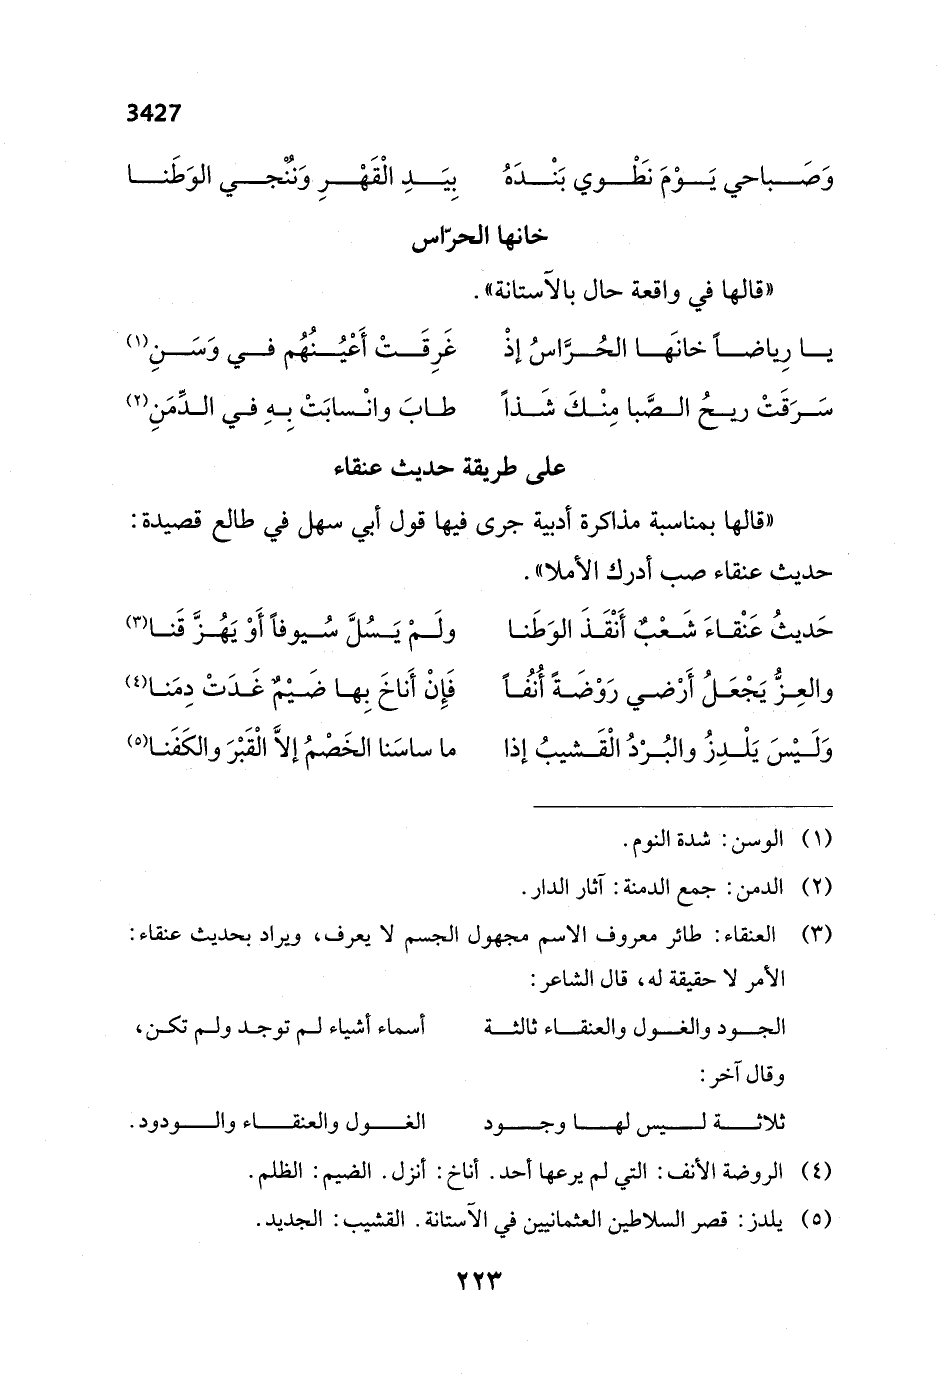 3427
وَصَبــاحي يَــوْمَ نَطْــوي بَنْــدَهُ بِيَــدِ الْقَهْــرِ وَنُنْجــي الوَطَنــا
خانها الحرّاس
«قالها في واقعة حال بالآستانة».
يــا رِياضــاً خانَهــا الحُــرَّاسُ إذْ غَرِقَــتْ أَعْيُــنُهُم فــي وَسَــنِ(١)
سَــرَقَتْ ريــحُ الــصَّبا مِنْــكَ شَــذاً طــابَ وانْــسابَتْ بِــهِ فــي الــدِّمَنِ(٢)
على طريقة حديث عنقاء
«قالها بمناسبة مذاكرة أدبية جرى فيها قول أبي سهل في طالع قصيدة:
حديث عنقاء صب أدرك الأملا».
حَديثُ عَنْقــاءَ شَــعْبٌ أَنْقَــذَ الوَطَنــا ولَــمْ يَــسُلَّ سُــيوفاً أوْ يَهُــزَّ قَنــا(٣)
والعِــزُّ يَجْعَــلُ أَرْضــي رَوْضَــةً أُنُفــاً فَإِنْ أَناخَ بِهــا ضَــيْمٌ غَــدَتْ دِمَنــا(٤)
وَلَــيْسَ يَلْــدِزُ والبُــرْدُ الْقَــشيبُ إذا ما ساسَنا الخَصْمُ إلاَّ الْقَبْرَ والكَفَنا(٥)
(١) الوسن: شدة النوم.
(٢) الدمن: جمع الدمنة: آثار الدار.
(٣) العنقاء: طائر معروف الاسم مجهول الجسم لا يعرف، ويراد بحديث عنقاء:
الأمر لا حقيقة له، قال الشاعر:
الجــود والغــول والعنقــاء ثالثــة أسماء أشياء لــم توجــد ولــم تكــن،
وقال آخر:
ثلاثــة لــيس لهــا وجــود الغــول والعنقــاء والــودود.
(٤) الروضة الأنف: التي لم يرعها أحد. أناخ: أنزل. الضيم: الظلم.
(٥) يلدز: قصر السلاطين العثمانيين في الآستانة. القشيب: الجديد.
٢٢٣